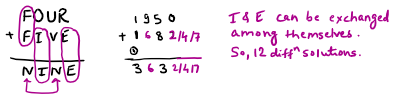 FOUR
+ FIVE
NINE
1950
+ 1682/4/7
0
3632/4/7
I & E can be exchanged
among themselves.
So, 12 diffⁿ solutions.